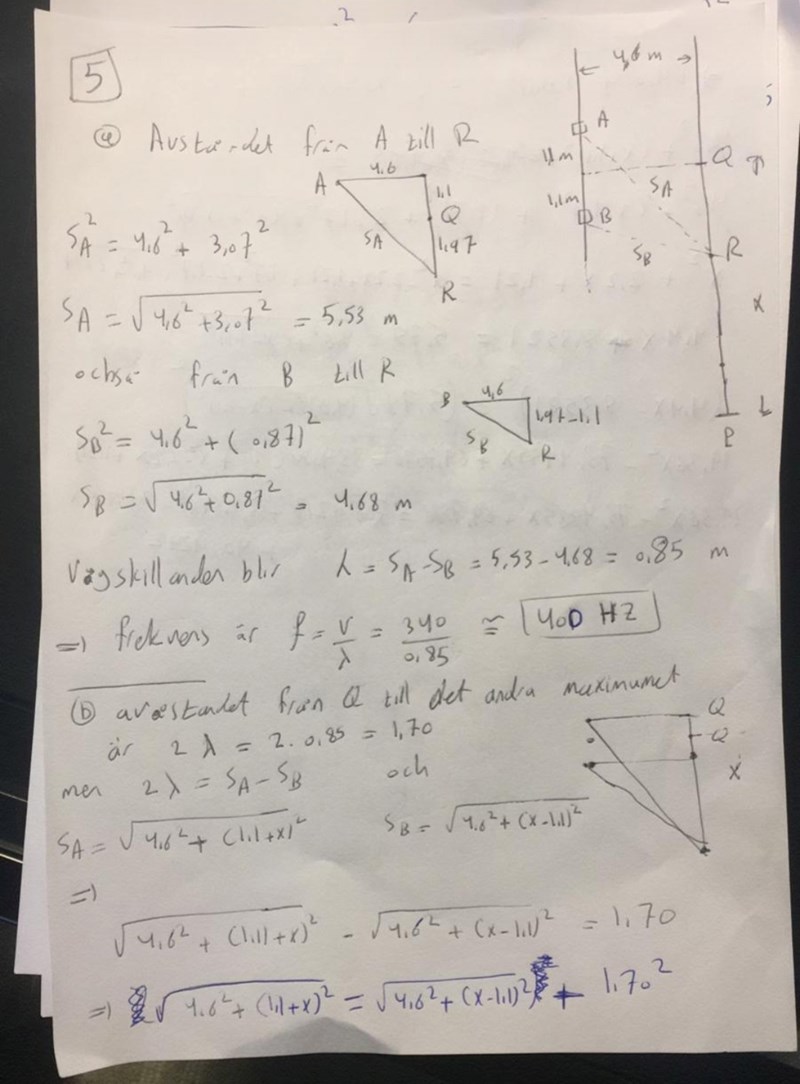 5
4,6 m
a) Avståndet från A till R
A
4.6
1.1
Q
1,97
R
S_A
A
1,1 m
1,1m
B
Q
S_A
S_B
R
x
P
S_A^2 = 4,6^2 + 3,07^2
S_A = √(4,6^2 + 3,07^2) = 5,53 m
också från B till R
B
4,6
1,97-1.1
S_B
R
S_B^2 = 4,6^2 + (0,87)^2
S_B = √(4,6^2 + 0,87^2) = 4,68 m
Vägskillnaden blir λ = S_A - S_B = 5,53 - 4,68 = 0,85 m
=) frekvens är f = v/λ = 340/0,85 ≅ 400 HZ
b) avståndet från Q till det andra maximumet
är 2 λ = 2. 0,85 = 1,70
men 2 λ = S_A - S_B och
Q
Q
x
S_A = √(4,6^2 + (1,1+x)^2) S_B = √(4,6^2 + (x-1,1)^2)
=)
√(4,6^2 + (1,1+x)^2) - √(4,6^2 + (x-1,1)^2) = 1,70
=) √(4,6^2 + (1,1+x)^2) = √(4,6^2 + (x-1,1)^2) + 1.70^2